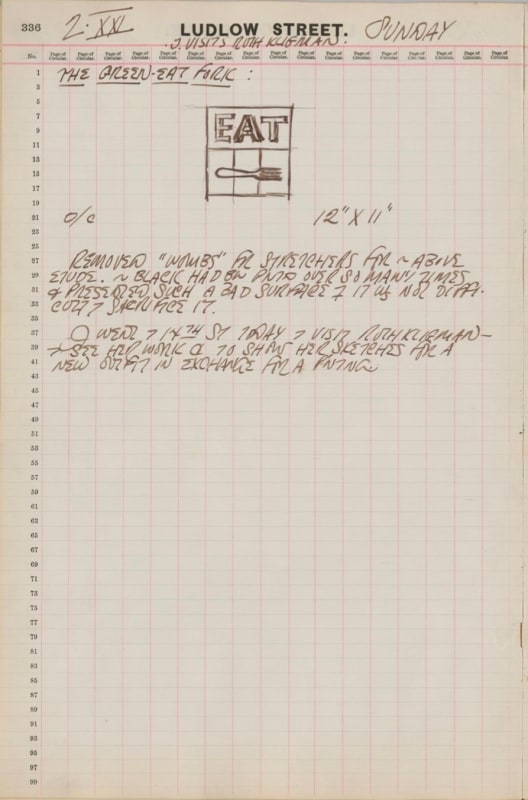 336 2·XXI LUDLOW STREET. SUNDAY
J. VISITS RUTH KLIGMAN.
No. Page of Circular. Page of Circular. Page of Circular. Page of Circular. Page of Circular. Page of Circular. Page of Circular. Page of Circular. Page of Circular. Page of Circular. Page of Circular. Page of Circular.
1 THE GREEN-EAT FORK :
3
5
7
9 EAT
11
13
15
17
19
21 O/C 12" X 11"
23
25
27 REMOVED "WOMBS" FOR STRETCHERS FOR ~ ABOVE
29 ETUDE. ~ BLACK HAD BN PNTD OVER SO MANY TIMES
31 & PRESENTED SUCH A BAD SURFACE IT WS NOT DIFFI-
33 CULT SACRIFICE IT.
35
37 WENT 14TH ST TODAY VISIT RUTH KLIGMAN—
39 SEE HER WORK TO SHOW HER SKETCHES FOR A
41 NEW OUTFIT IN EXCHANGE FOR A PNTNG
43
45
47
49
51
53
55
57
59
61
63
65
67
69
71
73
75
77
79
81
83
85
87
89
91
93
95
97
99